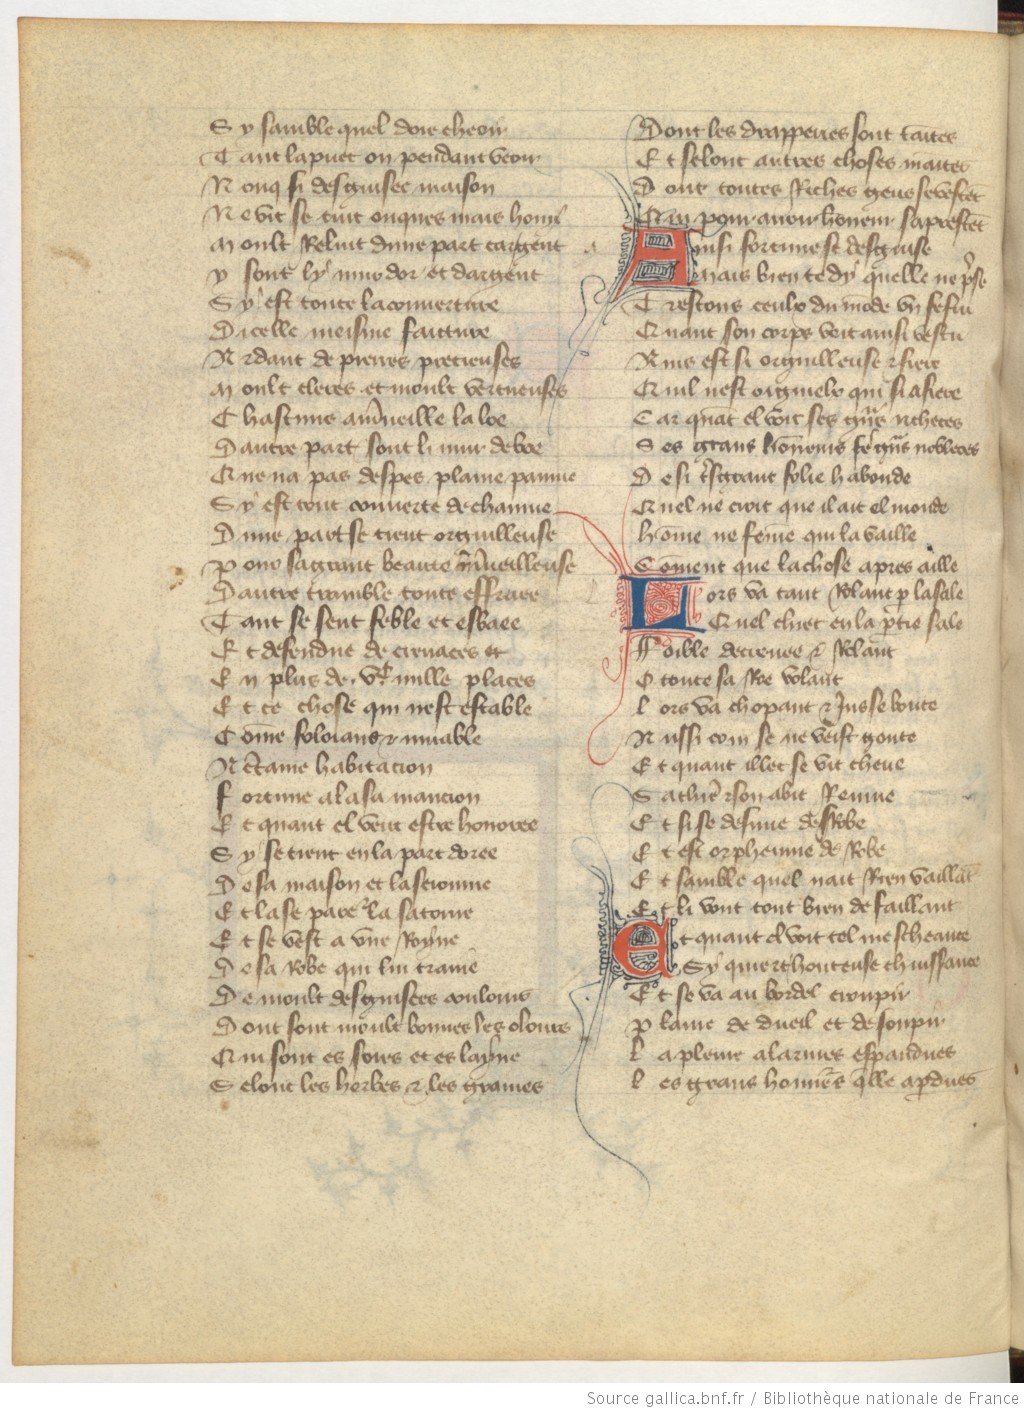 S y samble quel doie cheoir
T ant la puet on pendant veoir
N onq si desguisee maison
N e vit se cuit onques mais hom
M oult reluit dune part car gent
y sont ly mur dor et dargent
S y est toute la couverture
D icelle meisme faiture
A rdant de pierres precieuses
M oult cleres et moult vertueuses
C hascuns a mueille la loe
D autre part sont li mur de boe
Q ui na pas despes plaine paume
S y est tout couverte de chaume
D une part se tient orguilleuse
p our sa grant beaute mueilleuse
D autre tramble toute effraee
T ant se sent feble et esbaee
E t defendue de crevaces
E n plus de .vc. mille places
E t ce chose qui nest estable
C ome foloians et muable
A certaine habitacion
f ortune a la sa mancion
E t quant el veut estre honoree
S y se tient en la part doree
D e sa maison et la seiourne
E t la se pare et la satorne
E t se vest a une royne
D e sa robe qui lui traine
D e moult desguisees coulours
D ont sont moult bonnes les olours
Q ui sont es soies et es layne
S elonc les herbes et les graines
D ont les drapperies sont taites
E t selonc autres choses maites
D ont toutes riches gens se vestent
Q ui pour avoir honeur saprestent
A insi fortune se desguise
mais bien te dy quelle ne prise
T restous ceulx du mode un festu
Q uant son corps voit ainsi vestu
A ins est si orguilleuse et fiere
Q uil nest orguielx qui si afiere
C ar quant el voit ses grans richeces
S es grans honneurs ses grans nobleces
D e si tres grant folie habonde
Q uel ne croit que il ait el monde
home ne feme qui la vaille
Coment que la chose apres aille
L ors va tant rolant p la sale
Quel chiet en la ptie sale
ff oible decrevee et rolant
O toute sa roe volant
l ors va chopant et jus se boute
A ussi com se ne veist goute
E t quant illec se vit cheue
S a chiere et son abit remue
E t si se desnue et desrobe
E t est orphenine de robe
E t samble quel nait rien vaillant
E t li vont tout bien defaillant
E t quant el voit tel mescheance
Sy quiert honteuse chuissance
E t se va au bordel croupir
p laine de dueil et de soupir
l a pleure a larmes espandues
l es grans honneurs qlle a pdues
Source gallica.bnf.fr / Bibliothèque nationale de France